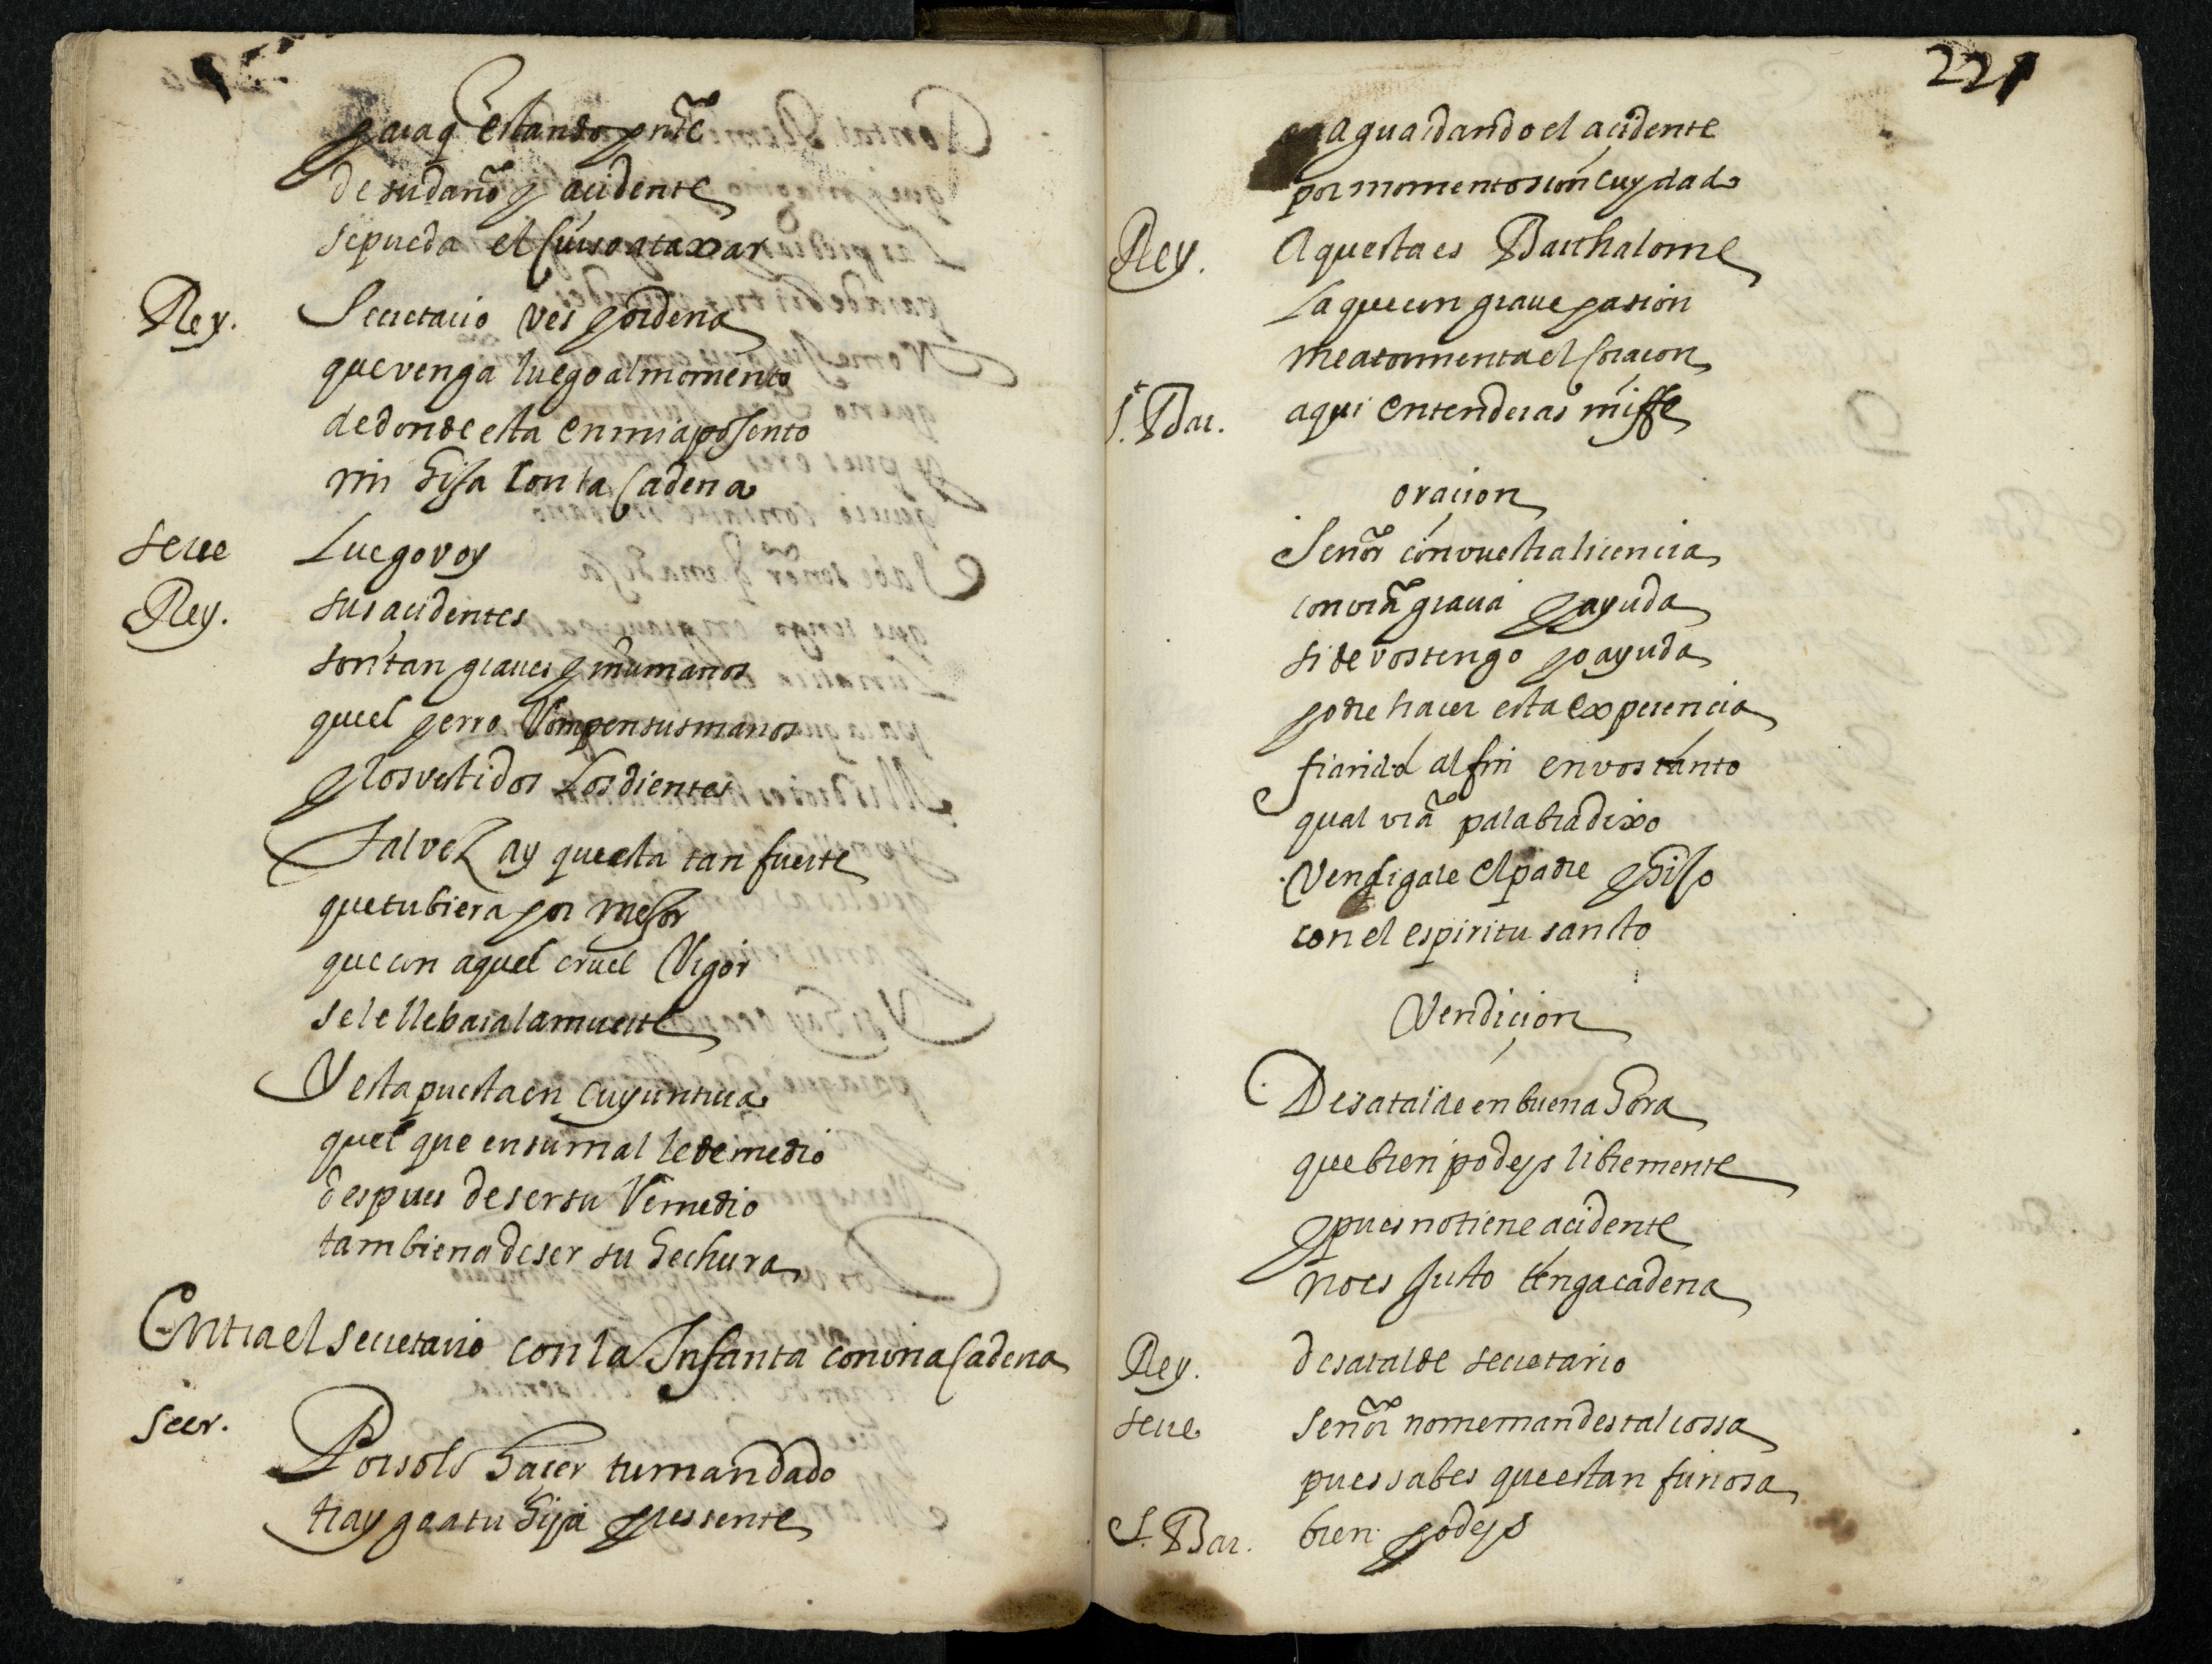 paraq estando pnte
de su daño y acidente
se pueda el curso ataxar
Rey. Secretario ves y ordena
que venga luego al momento
de donde esta en mi aposento
mi hija con la cadena
secre Luego voy
Rey. sus acidentes
son tan graues y inumanos
quel perro Rompen sus manos
y los vestidos los dientes
Tal vez ay que esta tan fuerte
que tubiera por mejor
que con aquel cruel Rigor
se le llebara la muerte
Y esta puesta en cuyuntura
quel que en su mal le de medio
despues de ser su Remedio
tambien a de ser su hechura
Entra el secretario con la Infanta con una cadena
Secr. Por solo hacer tu mandado
traygo a tu hija pressente
221
aguardando el acidente
por momentos con cuydado
Rey. Aquesta es Barthalome
La que con graue pasion
me atormenta el coracon
S. Bar. aqui entenderas mi ffe
oracion
Señor con vuestra licencia
con vra gracia y ayuda
si de vos tengo yo ayuda
podre hacer esta experiencia
fiando al fin en vos tanto
qual vra palabra dixo
Vendigate el padre y hijo
con el espiritu sancto
Vendicion
Desatalde en buena hora
que bien podeys libremente
y pues no tiene acidente
no es justo tenga cadena
Rey. desatalde secretario
secre señor no me mandes tal cossa
pues sabes que es tan furiosa
S. Bar. bien podeys